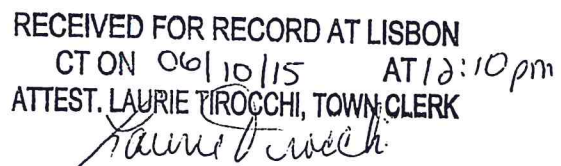 RECEIVED FOR RECORD AT LISBON
CT ON 06/10/15 AT 12:10 pm
ATTEST. LAURIE TIROCCHI, TOWN CLERK
Laurie Tirocchi